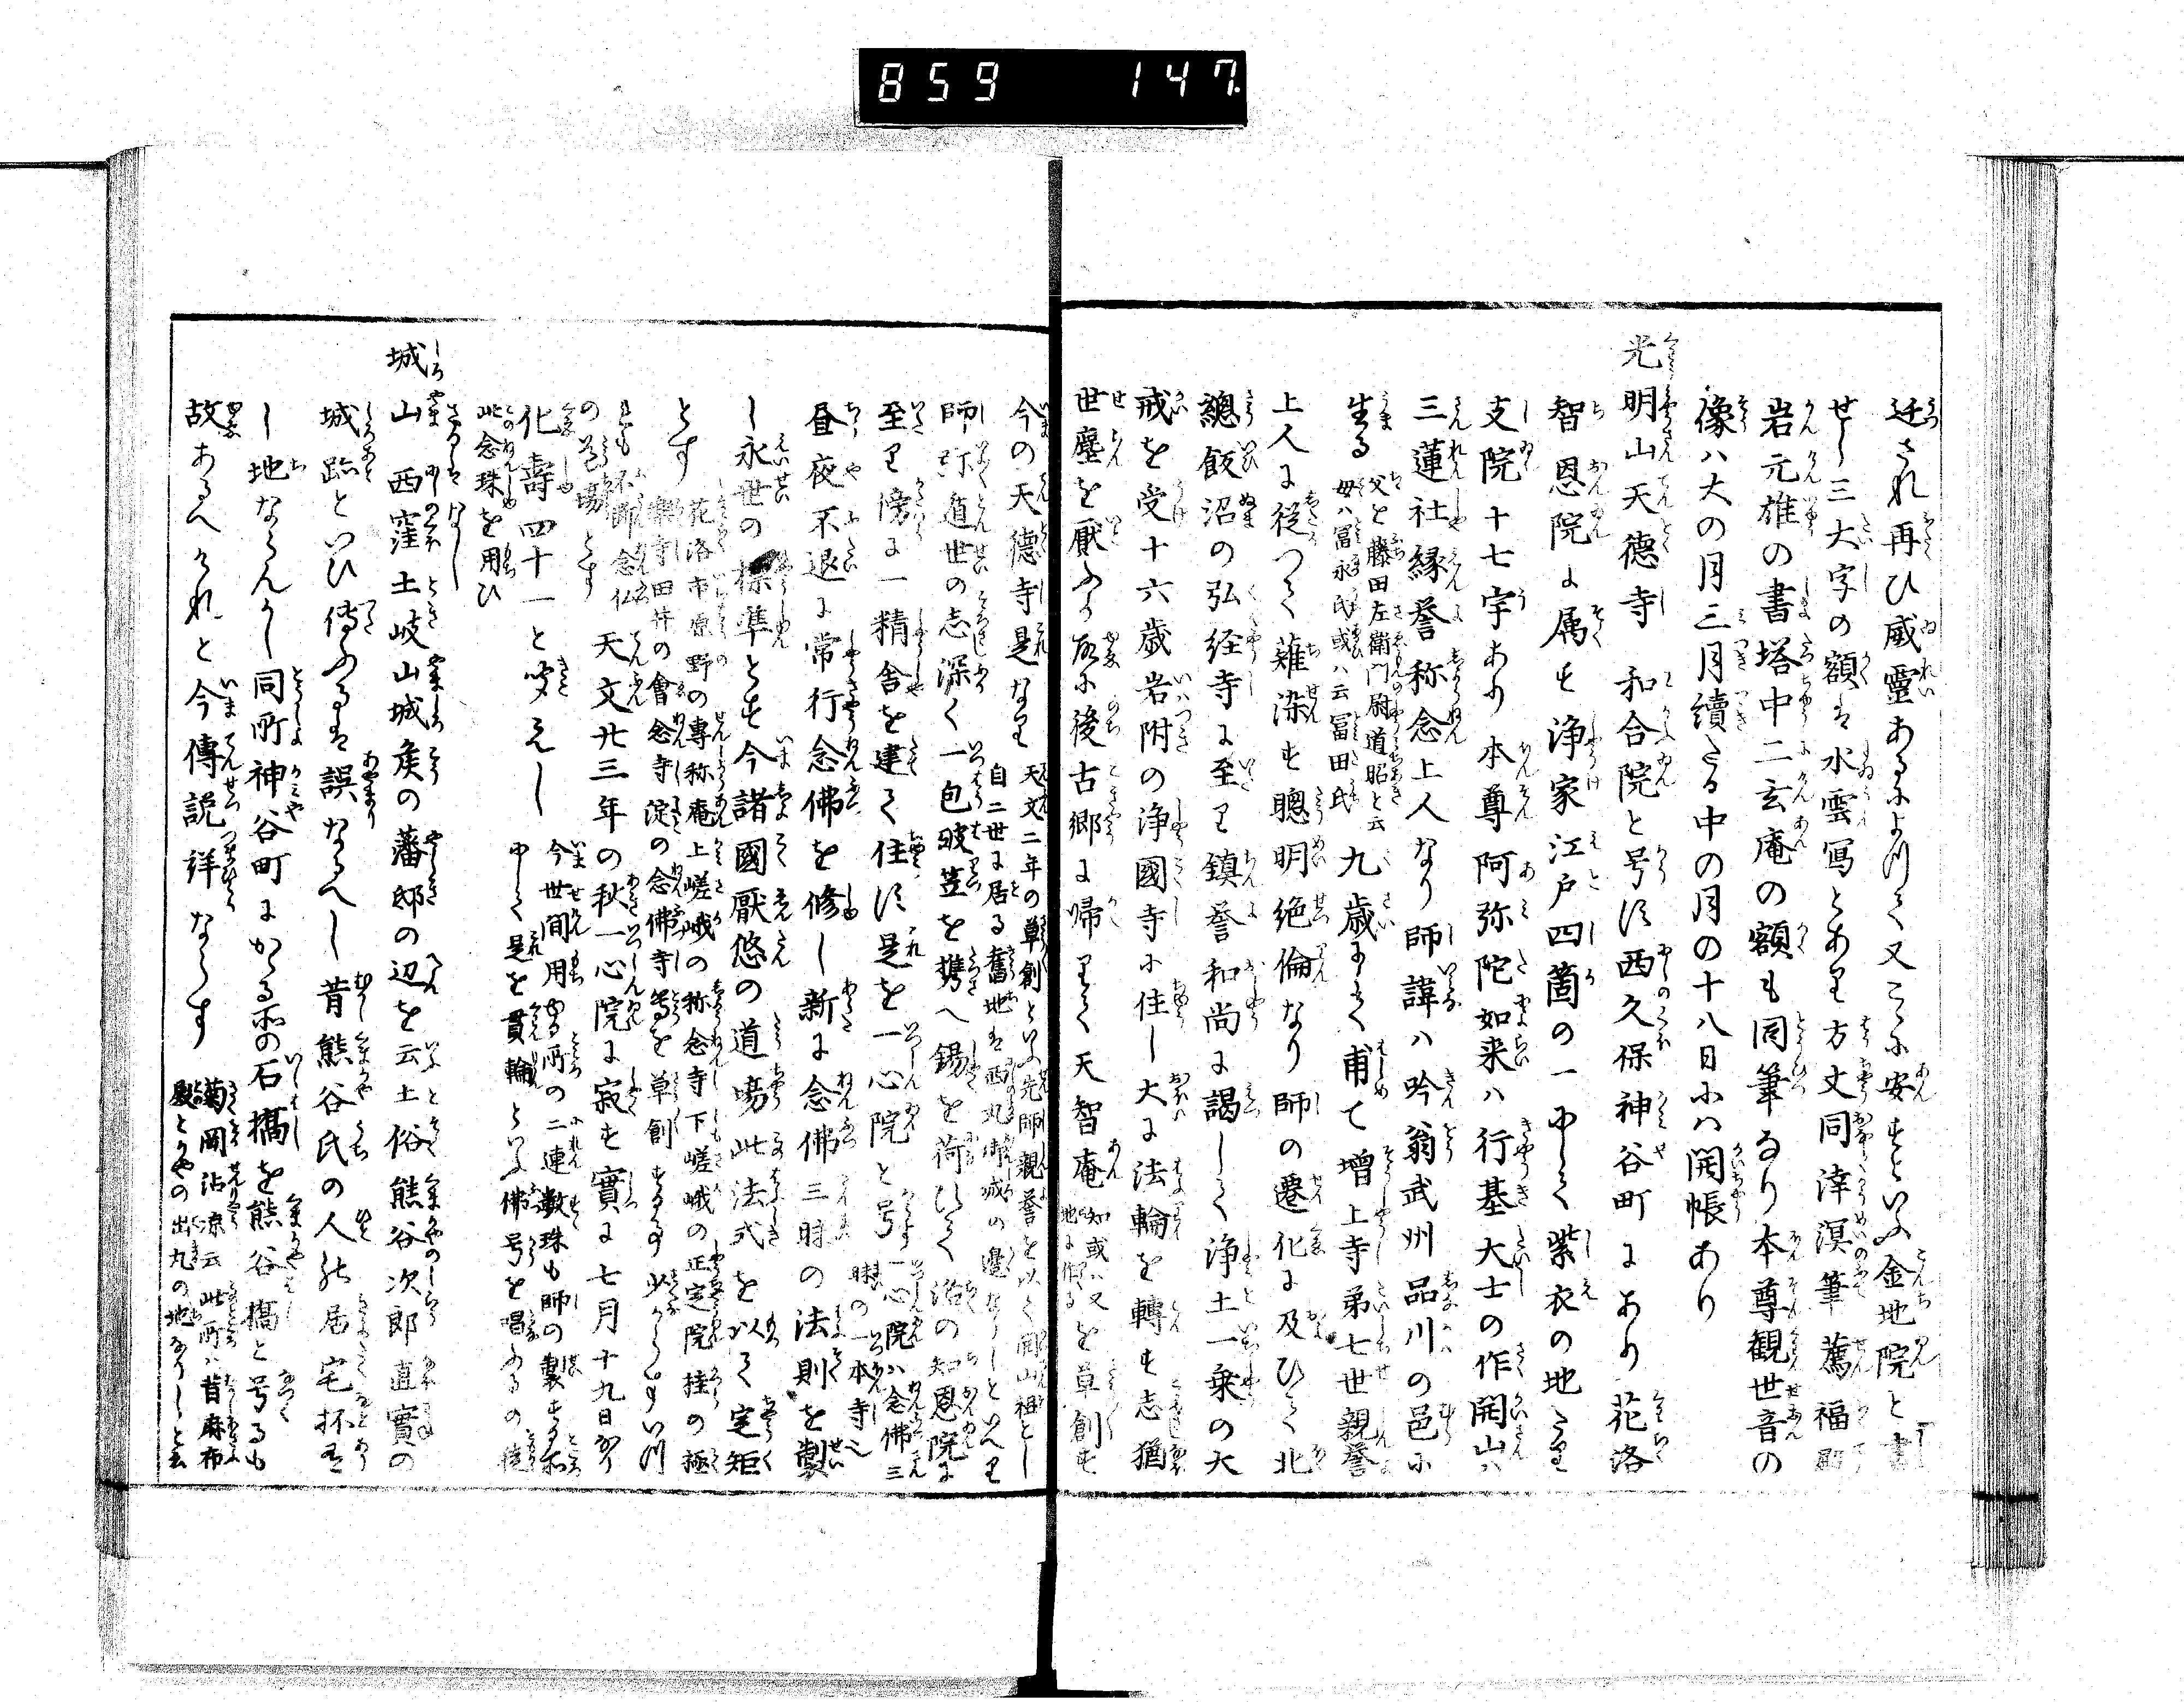 859 147
迁され再ひ威靈あるによつて又こゝに安すといふ金地院と書
せし三大字の額は水雲冩とあり方丈同涬溟筆薦福殿
岩元雄の書塔中二玄庵の額も同筆なり本尊観世音の
像ハ大の月三月續たる中の月の十八日にハ開帳あり
光明山天徳寺 和合院と号す西久保神谷町にあり花洛
智恩院に属す浄家江戸四箇の一にして紫衣の地たり
支院十七宇あり本尊阿弥陀如来ハ行基大士の作開山ハ
三蓮社縁誉称念上人なり師諱ハ吟翁武州品川の邑に
生る 父を藤田左衛門尉道昭と云
母ハ冨永氏或ハ云冨田氏 九歳にして甫て増上寺第七世親誉
上人に従つて薙染す聰明絶倫なり師の遷化に及ひて北
總飯沼の弘経寺に至り鎮誉和尚に謁して浄土一乗の大
戒を受十六歳岩附の浄國寺に住し大に法輪を轉す志猶
世塵を厭ふ故に後古郷に帰りて天智庵 知或ハ又
地に作る を草創す
今の天徳寺是なり 天文二年の草創といふ先師親誉を以て開山祖とし
自二世に居る舊地は西丸御城の邊なりといへり
師弥遁世の志深く一包破笠を携へ錫を荷ひて洛の知恩院に
至り傍に一精舎を建て住す是を一心院と号す 一心院ハ念佛三
昧の一本寺也
昼夜不退に常行念佛を修し新に念佛三時の法則を製
し永世の標準とす今諸國厭悠の道場此法式を以て定矩
とす 花洛市原野の専称庵上嵯峨の称念寺下嵯峨の正定院桂の極
楽寺田井の會念寺淀の念佛寺等を草創する事少からすいつ
れも不断念仏
の道場とす 天文廿三年の秋一心院に寂す實に七月十九日なり
化壽四十一と聞えし 今世間用る所の二連数珠も師の製する所
にして是を貫輪といふ佛号を唱ふるの徒
此念珠を用ひ
さるハなし
城山 西窪土岐山城矦の藩邸の辺を云土俗熊谷次郎直實の
城跡といひ傳ふるは誤なるへし昔熊谷氏の人の居宅抔有
し地ならんかし同所神谷町にかくる所の石橋を熊谷橋と号るも
故あるへけれと今傳説詳ならす 菊岡沾凉云此所ハ昔麻布
殿とかやの出丸の地なりしと云